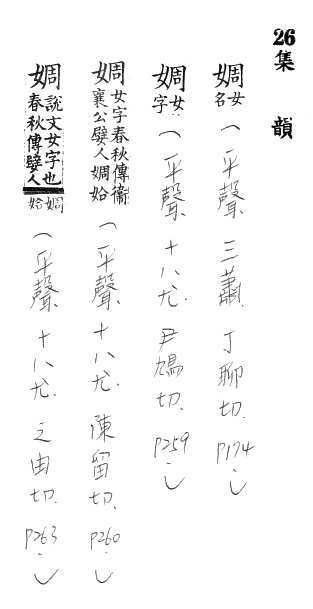 26 集韻
婤 女名(平聲、三蕭、丁聊切、P174、)
婤 女字(平聲、十八尤、尹鳩切、P259、)
婤 女字春秋傳衛襄公嬖人婤姶(平聲、十八尤、陳留切、P260、)
婤 說文女字也春秋傳嬖人婤姶(平聲、十八尤、之由切、P263、)